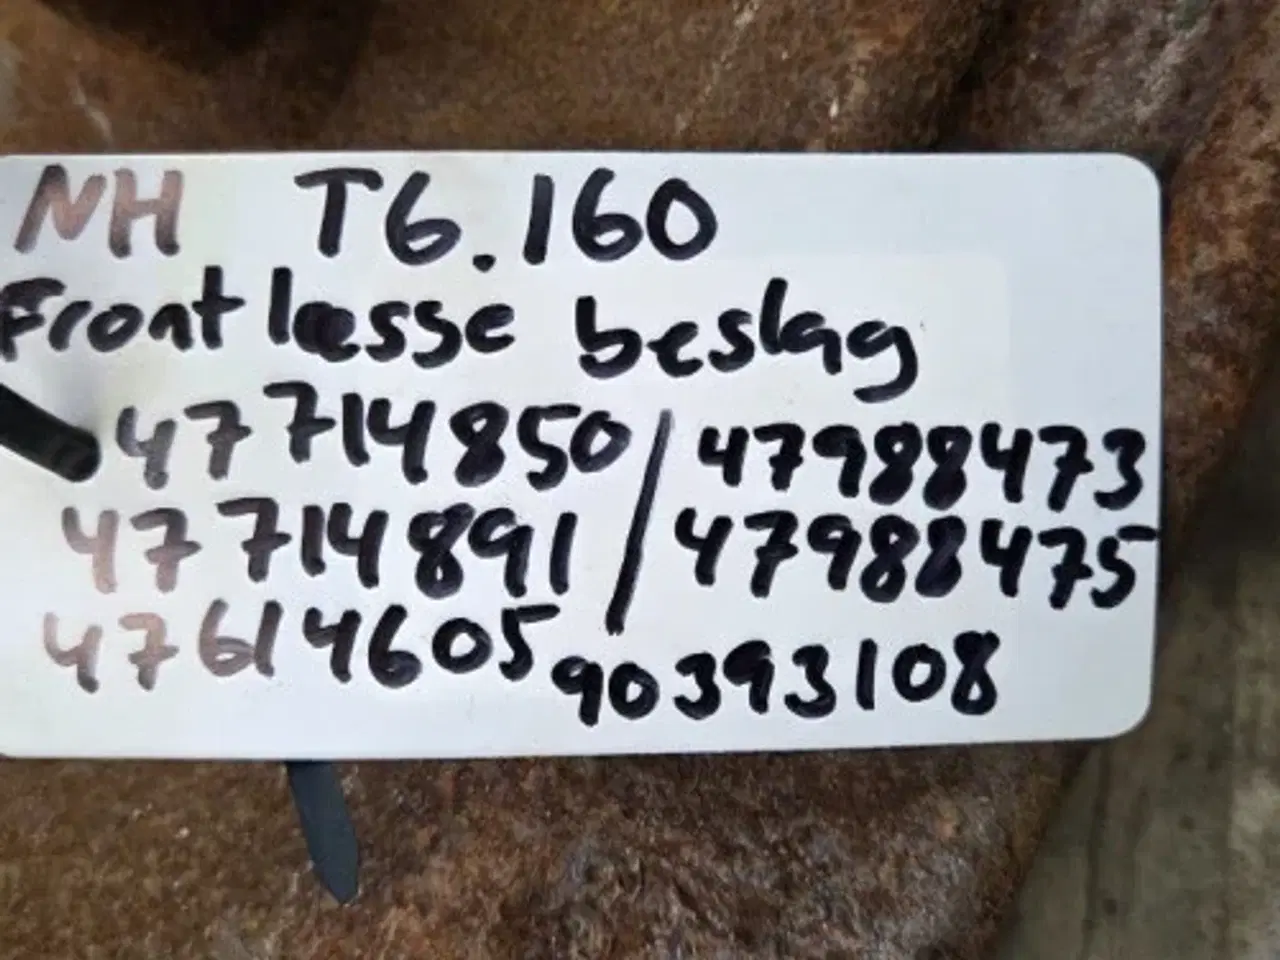 NH T6.160
Frontlæsse beslag
47714850 / 47988473
47714891 / 47988475
47614605 90393108